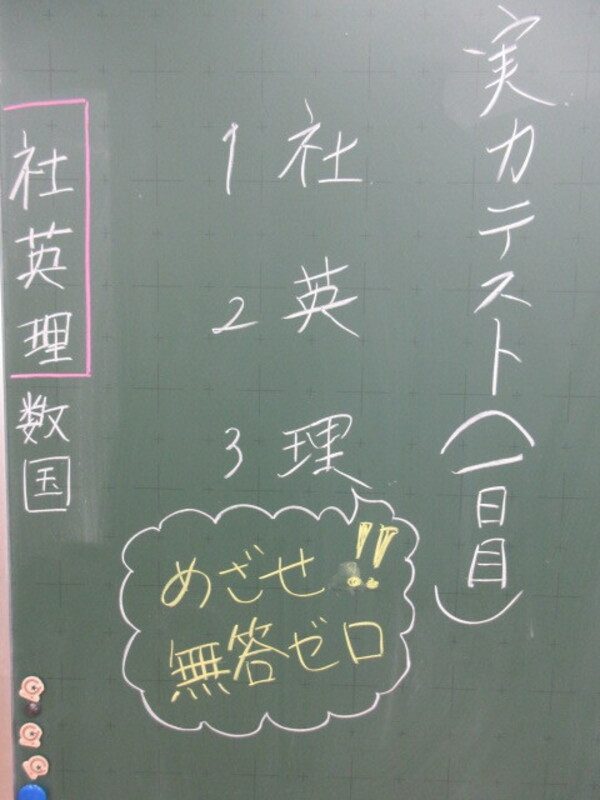 実力テスト(一日目)
1 社
2 英
3 理
めざせ!!
無答ゼロ
社英理数国